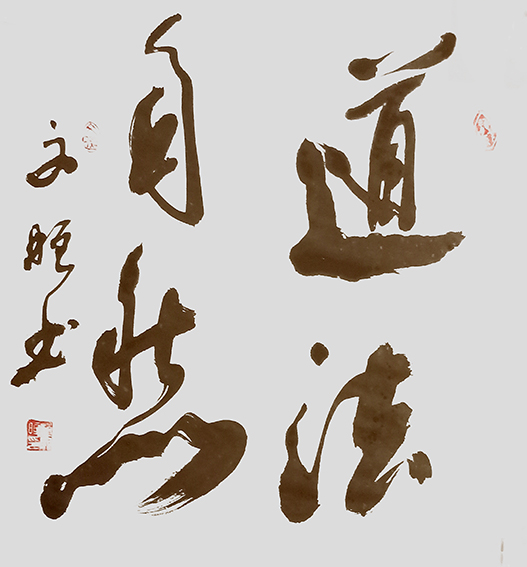 道法
自然
文艷书